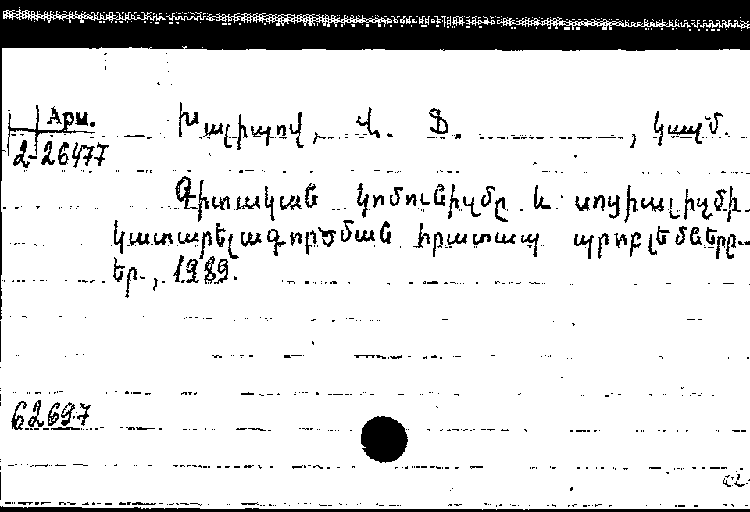 Арм.
Խալիպով, Վ. Ֆ. , կազմ.
2-26477
Գիտական կոմունիզմը և սոցիալիզմի
կատարելագործման հրատապ պրոբլեմները.
Եր., 1989.
62697